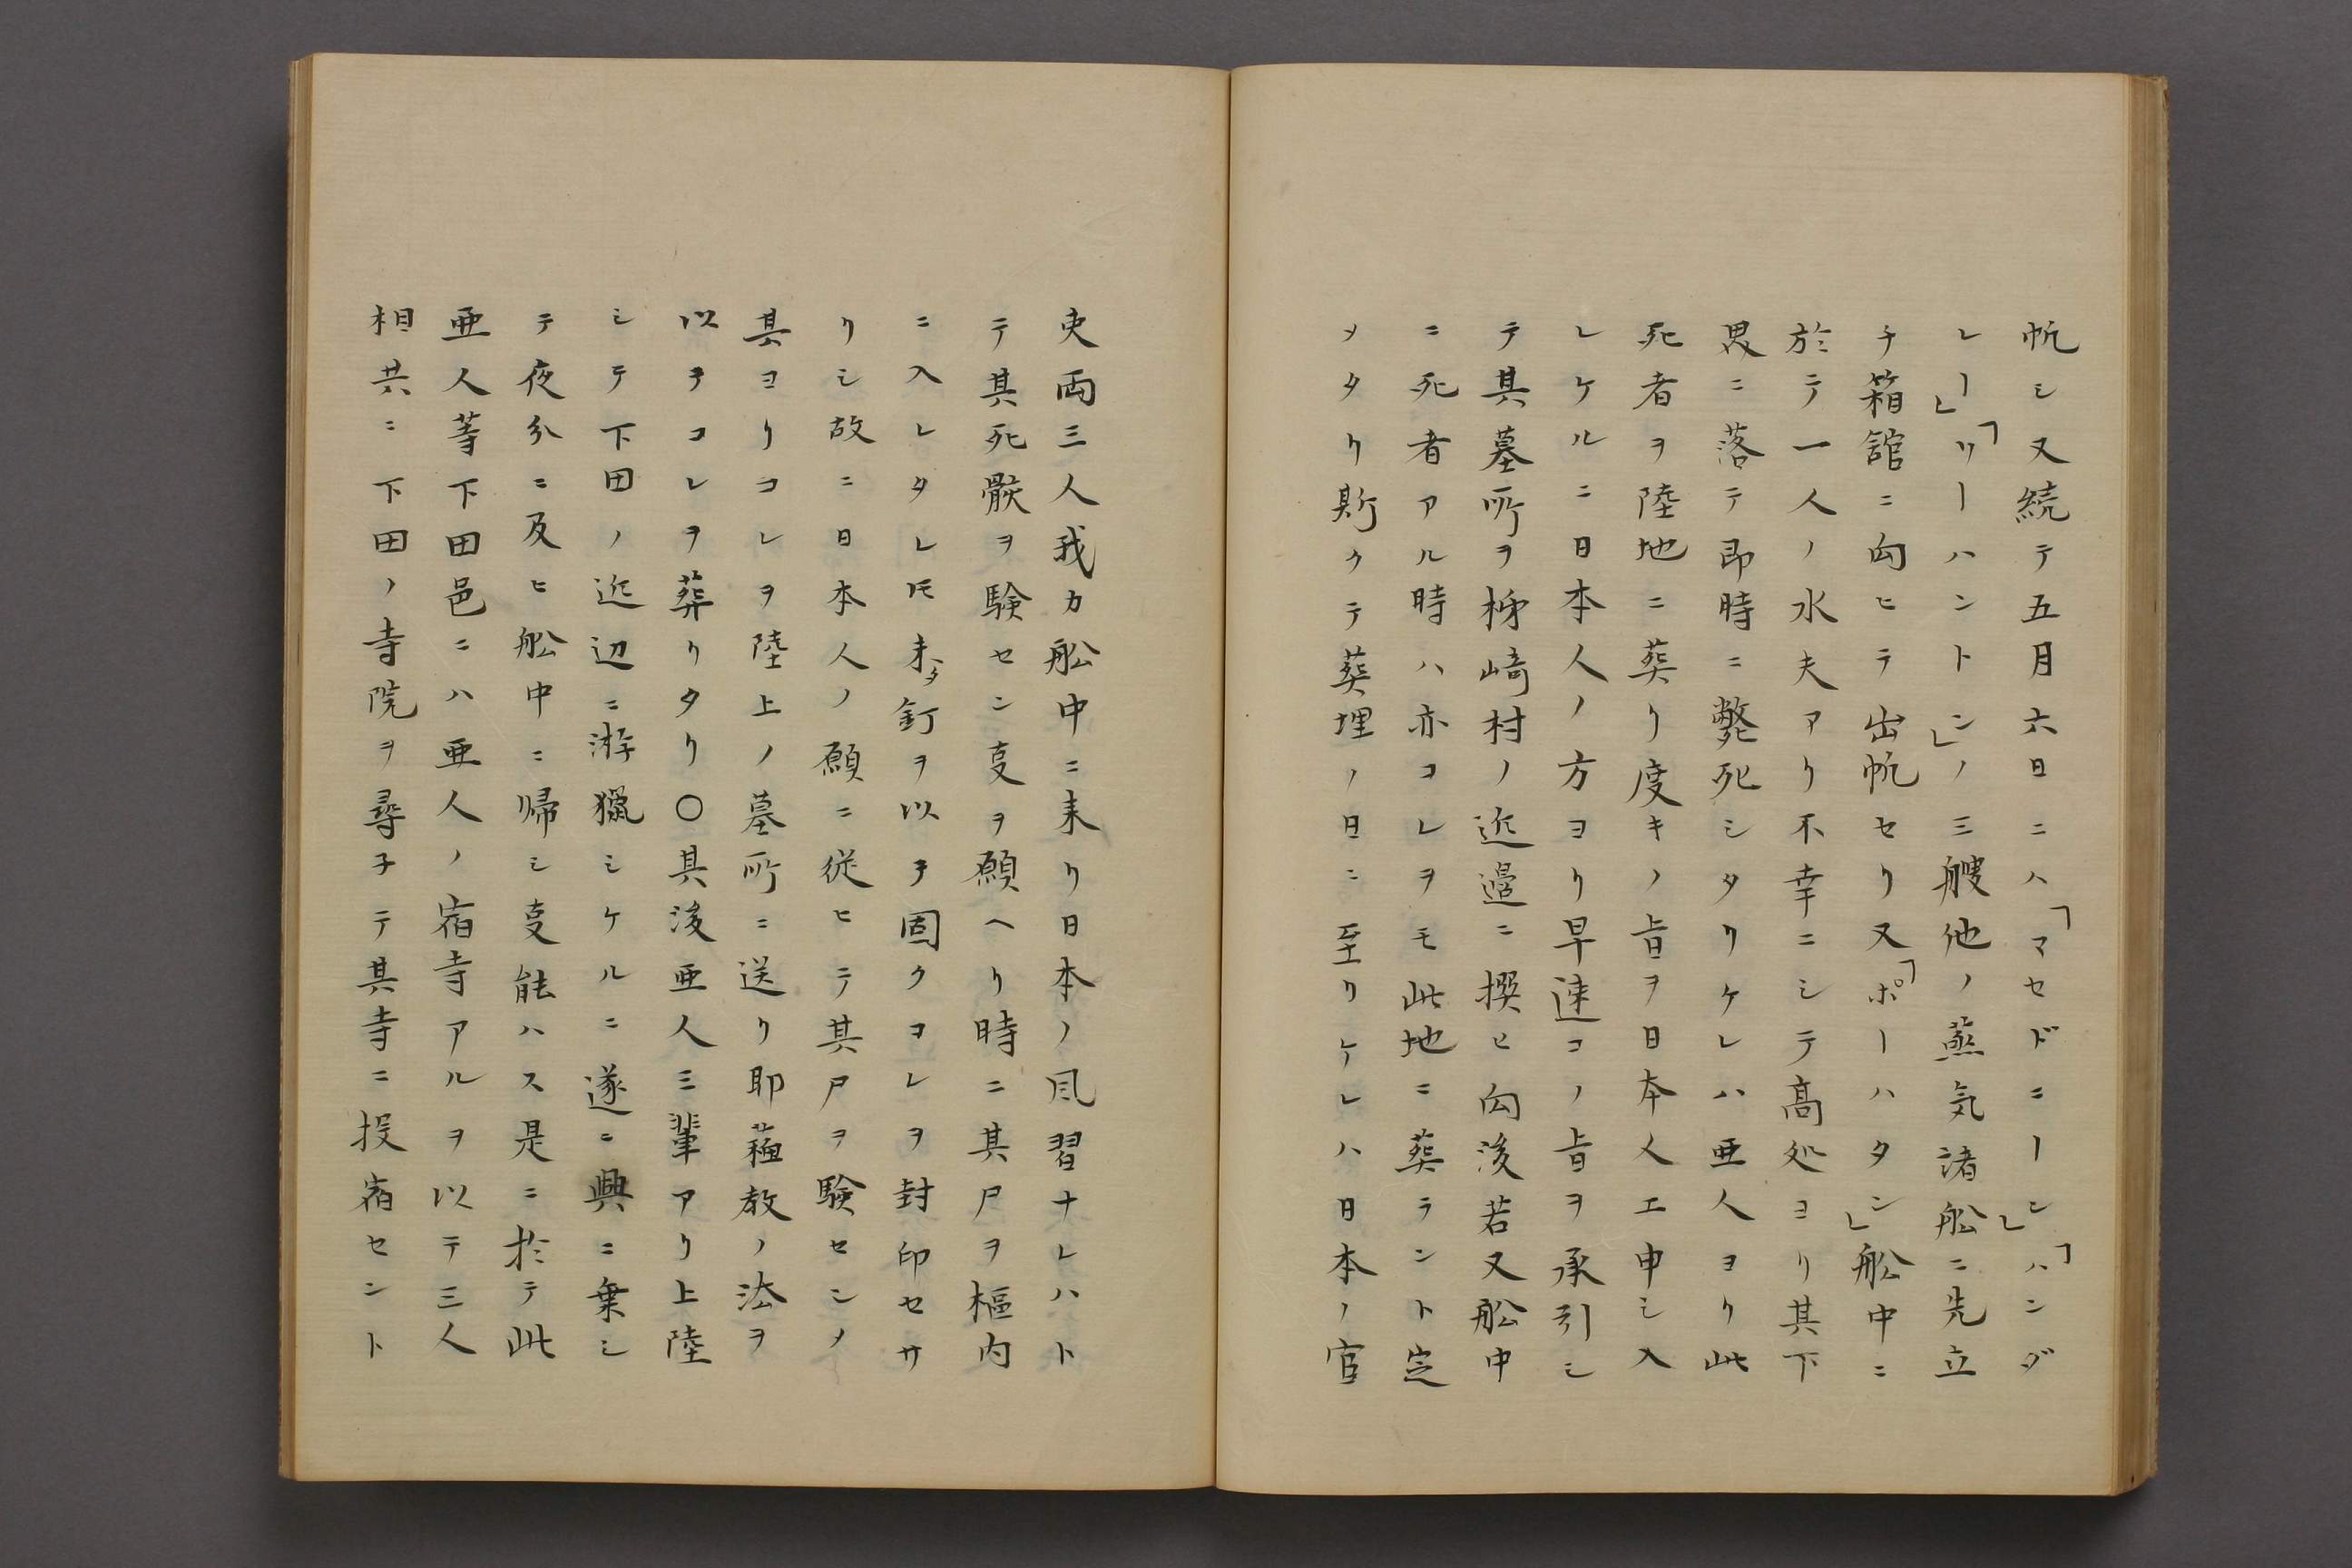 帆シ又続テ五月六日ニハ「マセドニーン」「ハンダ
レー」「リーハントン」ノ三艘他ノ蒸気諸舩ニ先立
チ箱舘ニ向ヒテ出帆セリ又「ポーハタン」舩中ニ
於テ一人ノ水夫アリ不幸ニシテ髙処ヨリ其下
甼ニ落テ即時ニ斃死シタリケレハ亜人ヨリ此
死者ヲ陸地ニ葬リ度キノ旨ヲ日本人エ申シ入
レケルニ日本人ノ方ヨリ早速コノ旨ヲ承引シ
テ其墓所ヲ柹﨑村ノ近邉ニ撰ヒ向後若又舩中
ニ死者アル時ハ亦コレヲモ此地ニ葬ラント定
メタリ斯クテ葬埋ノ日ニ至リケレハ日本ノ官
吏両三人我カ舩中ニ来リ日本ノ風習ナレハト
テ其死骸ヲ験セン叓ヲ願ヘリ時ニ其尸ヲ柩内
ニ入レタレ𪜈未タ釘ヲ以テ固クコレヲ封印セサ
リシ故ニ日本人ノ願ニ従ヒテ其尸ヲ験センメ
其ヨリコレヲ陸上ノ墓所ニ送リ耶蘓教ノ法ヲ
以テコレヲ葬リタリ〇其後亜人三輩アリ上陸
シテ下田ノ近辺ニ游猟シケルニ遂ニ興ニ乗シ
テ夜分ニ及ヒ舩中ニ帰シ叓能ハス是ニ於テ此
亜人等下田邑ニハ亜人ノ宿寺アルヲ以テ三人
相共ニ下田ノ寺院ヲ尋子テ其寺ニ投宿セント